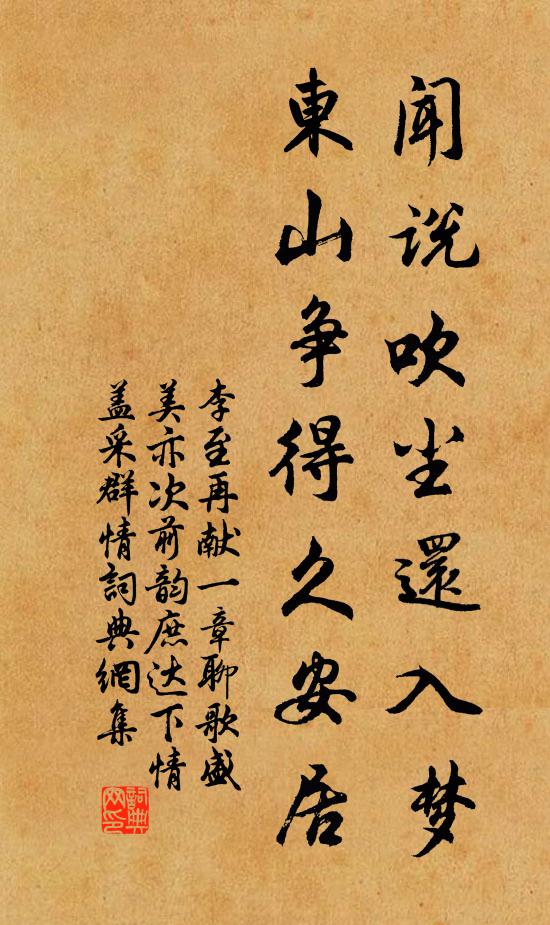 闻说吹尘還入梦
東山争得久安居
李至再献一章聊歌盛
美亦次前韵庶达下情
盖采群情詞典網集